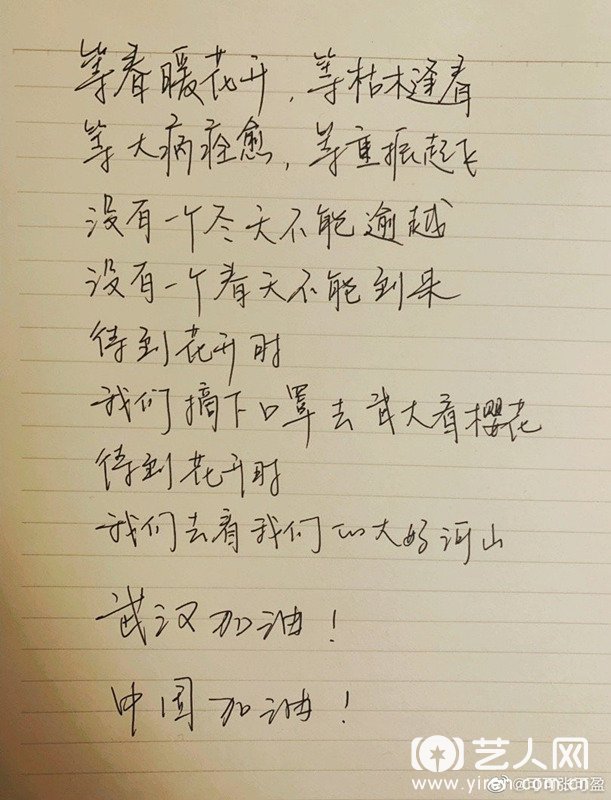 等春暖花开，等枯木逢春
等大病痊愈，等重振起飞
没有一个冬天不能逾越
没有一个春天不能到来
待到花开时
我们摘下口罩去武大看樱花
待到花开时
我们去看我们的大好河山
武汉加油！
中国加油！
艺人网
www.yiren.com.cn
@可可张可盈